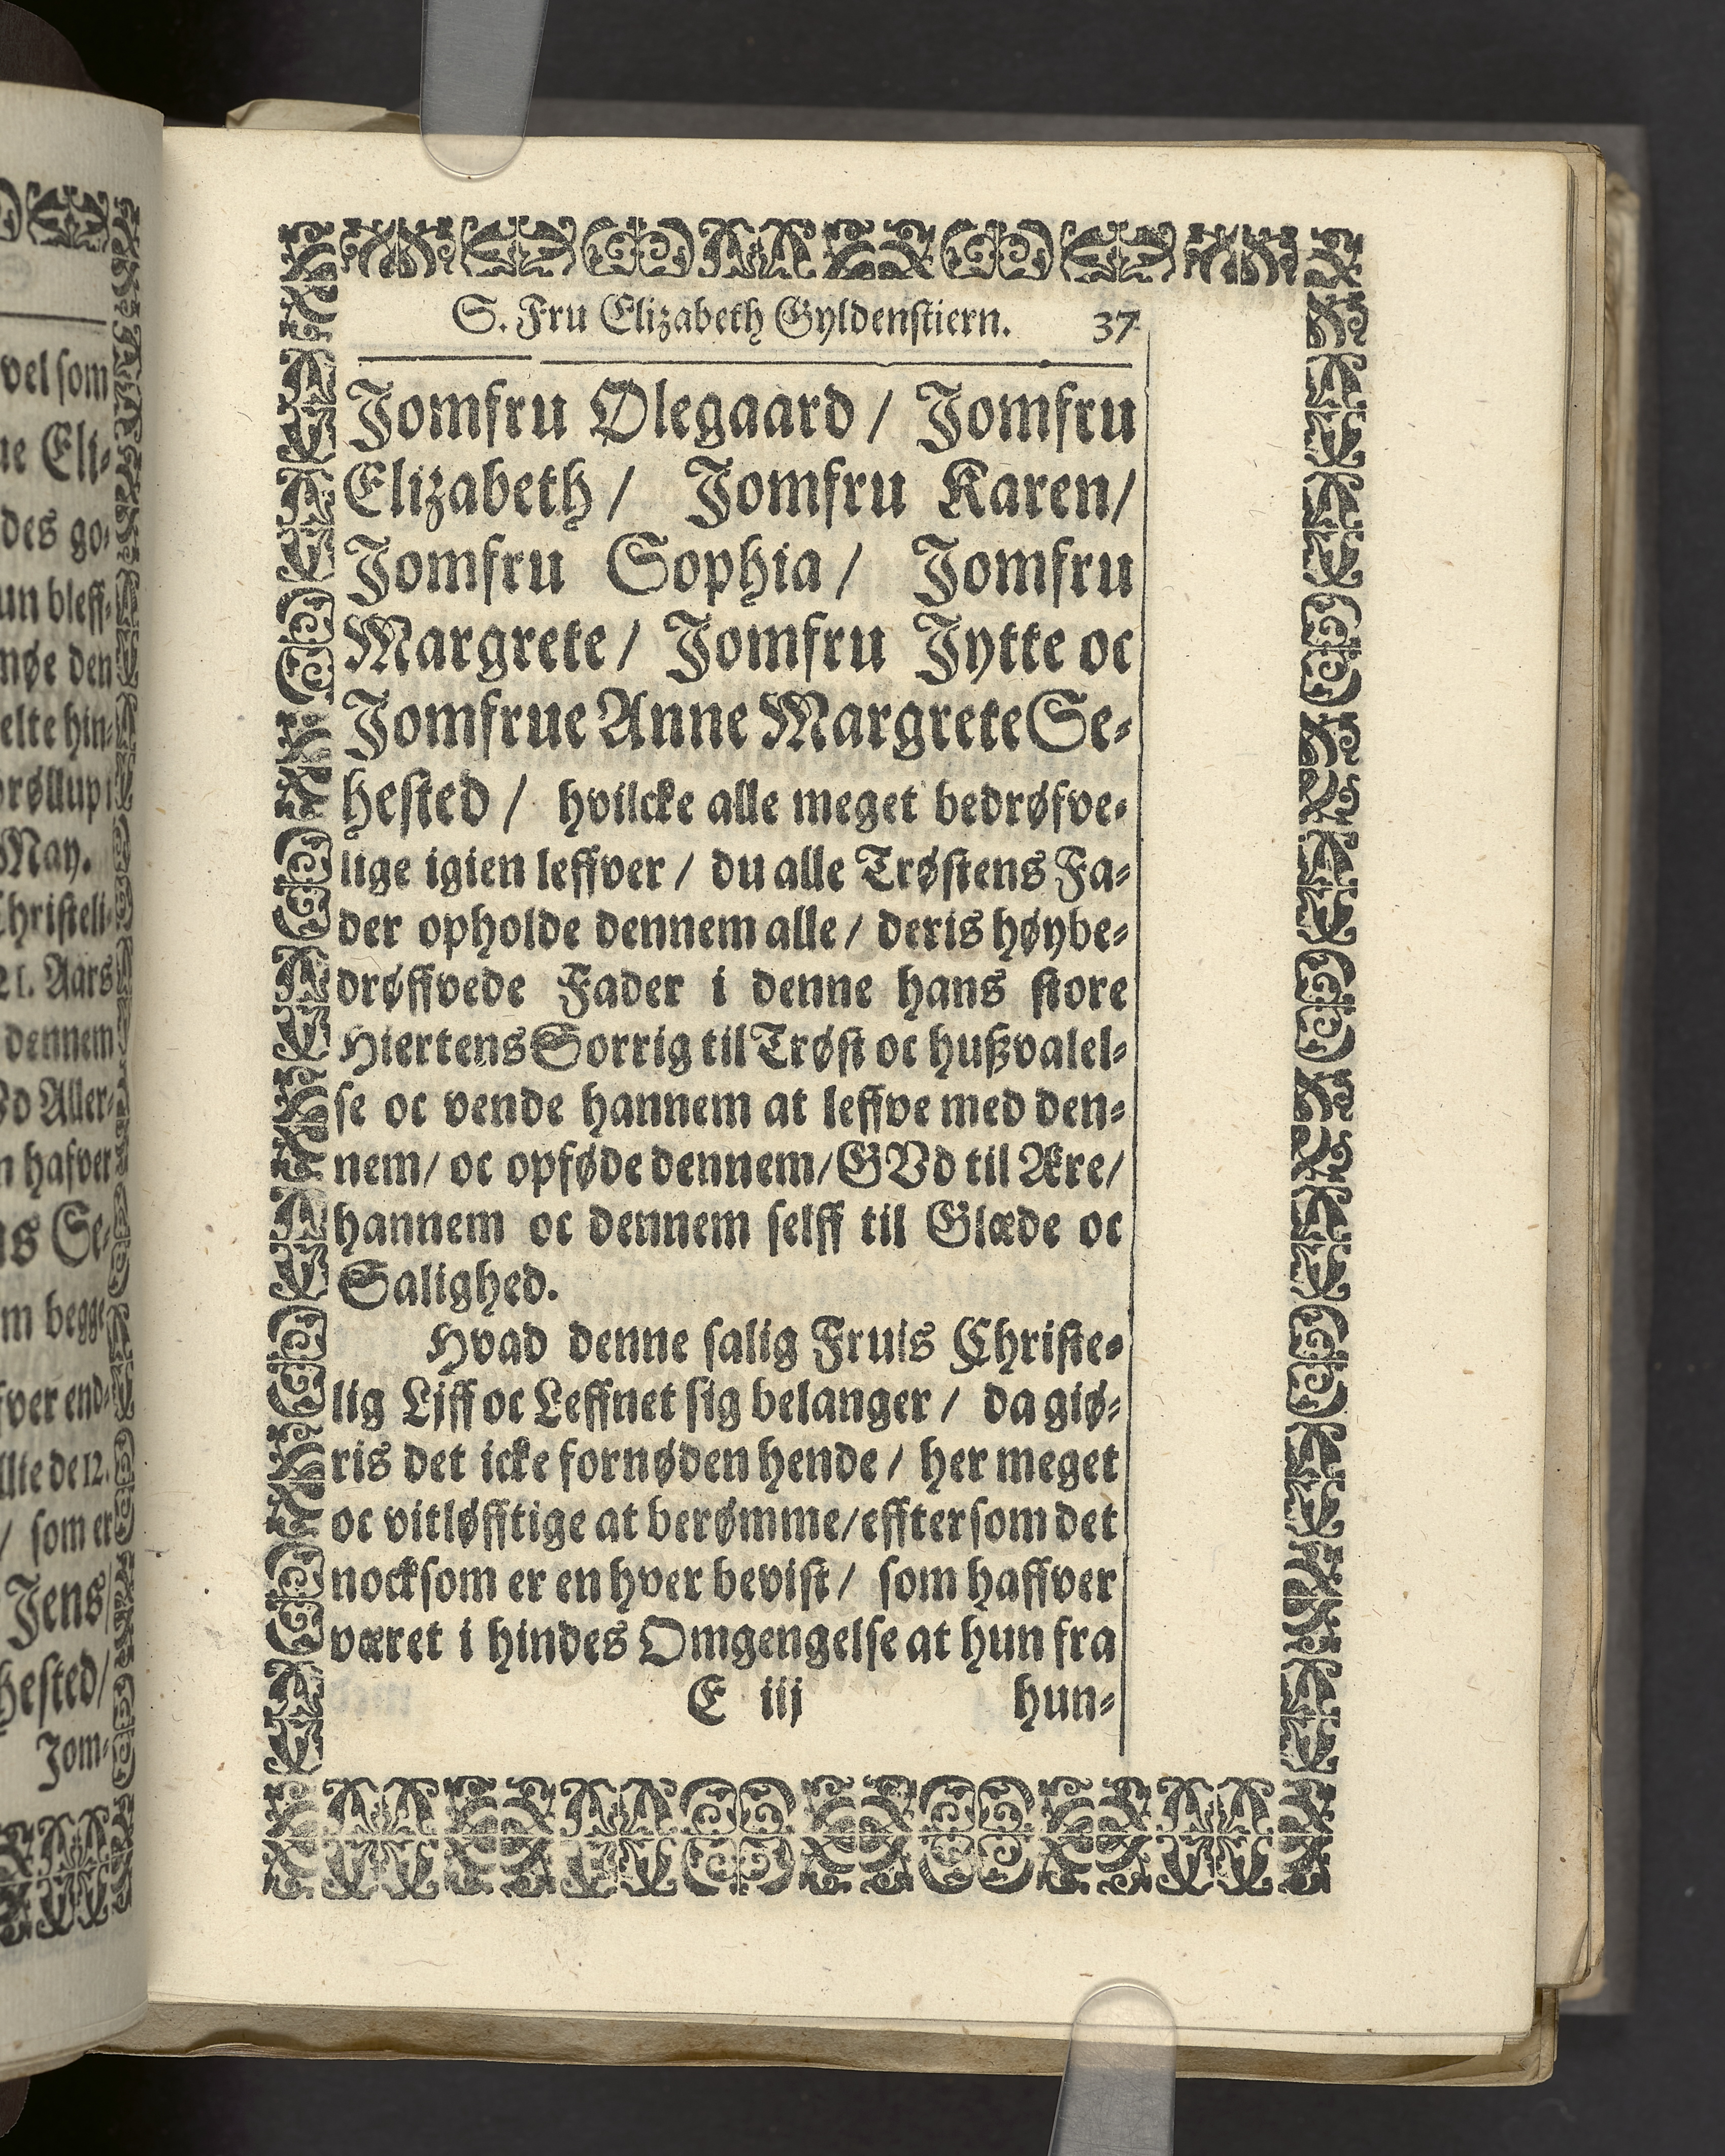 S. Fru Elizabeth Gyldenstiern. 37
Jomfru Ølegaard / Jomfru
Elizabeth / Jomfru Karen/
Jomfru Sophia / Jomfru
Margrete / Jomfru Jytte oc
Jomfrue Anne Margrete Se-
hested / hvilcke alle meget bedrøfve-
lige igien leffver / du alle Trøstens Fa-
der opholde dennem alle / deris høybe-
drøffvede Fader i denne hans store
Hiertens Sorrig til Trøst oc hußvalel-
se oc vende hannem at leffve med den-
nem/ oc opføde dennem/ GVd til Ære/
hannem oc dennem selff til Glæde oc
Salighed.
Hvad denne salig Fruis Christe-
lig Ljff oc Leffnet sig belanger / da giø-
ris det icke fornøden hende / her meget
oc vitløfftige at berømme/ effter som det
nocksom er en hver bevist / som haffver
været i hindes Omgengelse at hun fra
E iij hun-
vel som
ne Eli-
des go-
un bleff-
den
elte hin-
May.
Christeli-
21. Aars
dennem
Vd Aller-
hafver
Se-
begge
fver end-
de 12.
/ som er
Jens
hested/
Jom-